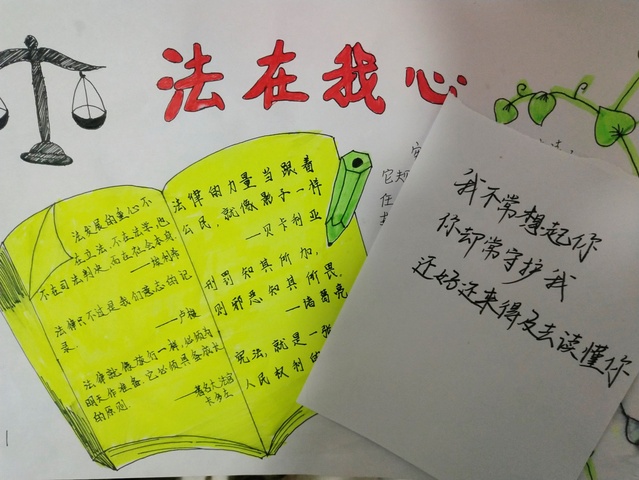 法在我心
法发展的重心不
在立法,不在法学,也
不在司法判决,而在社会本身。
——埃利希
法律只不过是我们意志的记
录。
——卢梭
法律就像旅行一样,必须为
明天作准备。它必须具备成长
的原则。
——著名大法官
卡多左
法律的力量当跟着
公民,就像影子一样
——贝卡利亚
刑罚知其所加,
则邪恶知其所畏。
——诸葛亮
宪法,就是一张
人民权利的
它规
任
我不常想起你
你却常守护我
还好还来得及去读懂你